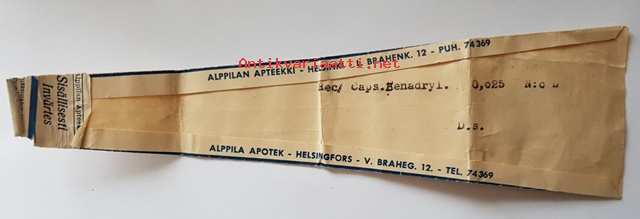 Alppilan Apteek
Sisällisesti
Invärtes
ALPPILAN APTEEKKI - HELSINKI - L. BRAHENK. 12 - PUH. 74369
Antikvariaatti.net
Rec/ Caps.Benadryl. 0,025 N:o
D.s.
ALPPILA APOTEK - HELSINGFORS - V. BRAHEG. 12. - TEL. 74369